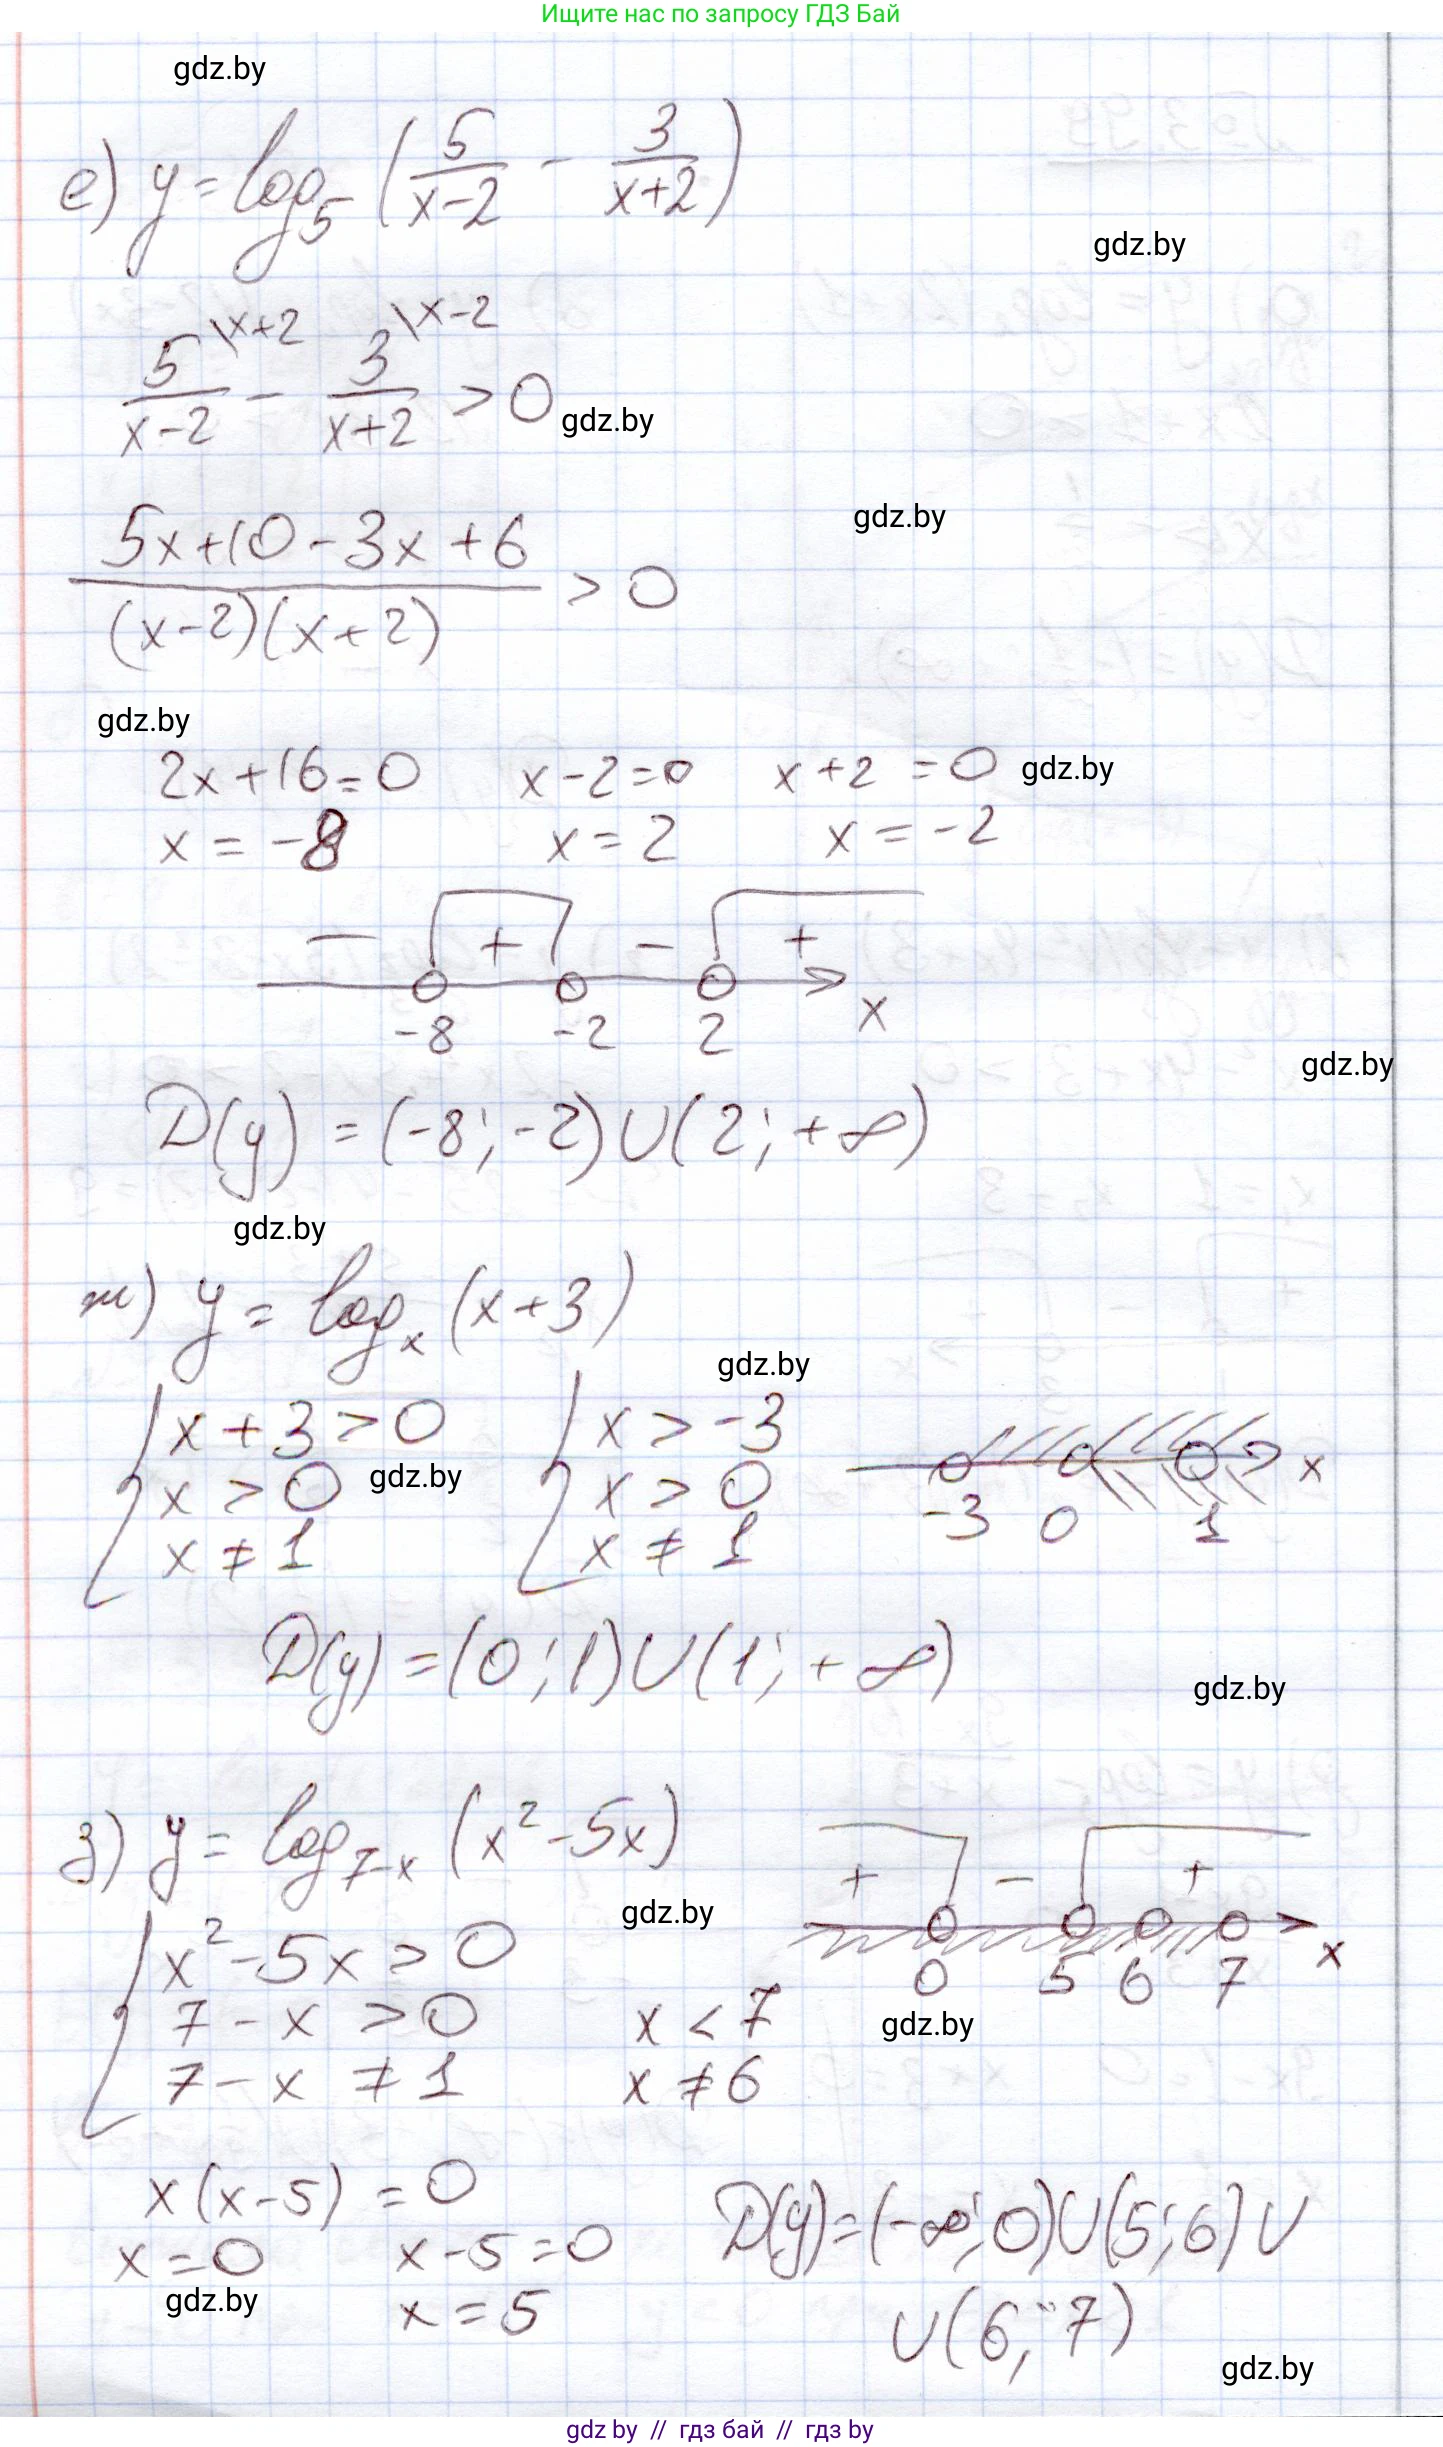 Ищите нас по запросу ГДЗ Бай
gdz.by
е) y = log₅ (5/(x-2) - 3/(x+2))
gdz.by
5/(x-2) \x+2 - 3/(x+2) \x-2 > 0
gdz.by
gdz.by
(5x+10-3x+6)/((x-2)(x+2)) > 0
gdz.by
2x+16=0 x-2=0 x+2=0 gdz.by
x = -8 x = 2 x = -2
- + - +
-8 -2 2 x
gdz.by
D(y) = (-8; -2) ∪ (2; +∞)
gdz.by
ж) y = logₓ (x+3)
gdz.by
{ x+3 > 0 { x > -3
x > 0 gdz.by x > 0 x
x ≠ 1 x ≠ 1 -3 0 1
D(y) = (0; 1) ∪ (1; +∞)
gdz.by
з) y = log₇₋ₓ (x² - 5x)
+ - +
gdz.by
0 5 6 7 x
{ x² - 5x > 0
7 - x > 0 x < 7 gdz.by
7 - x ≠ 1 x ≠ 6
x(x-5) = 0
x = 0 x-5 = 0 D(y) = (-∞; 0) ∪ (5; 6) ∪
gdz.by x = 5 ∪ (6; 7)
gdz.by
gdz by // гдз бай // гдз by